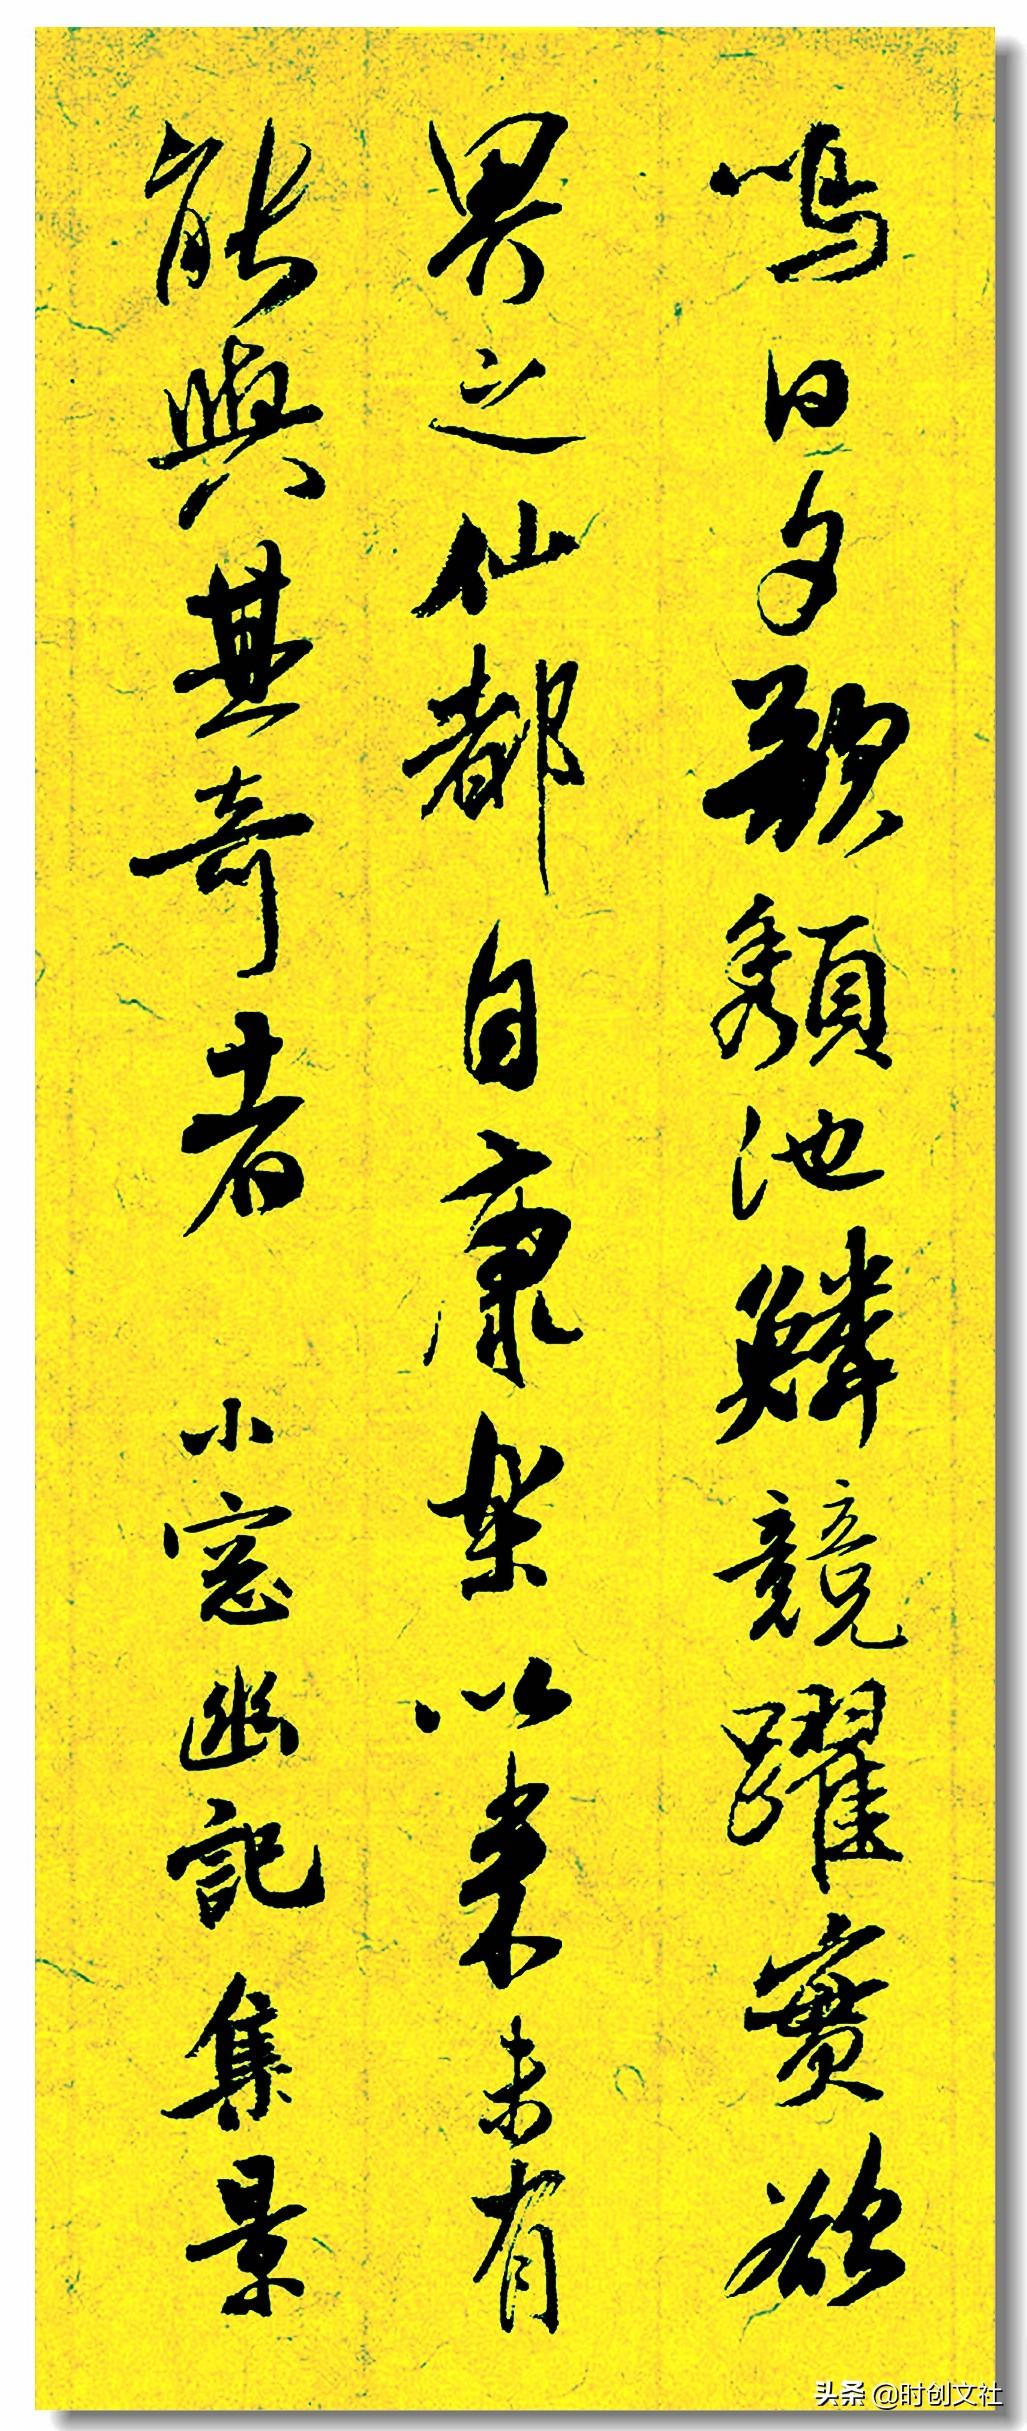 鳴日夕頹池鱗競躍實欲
界之仙都自康樂以來未有
能與其奇者 小窓幽記 集景
头条 @时创文社